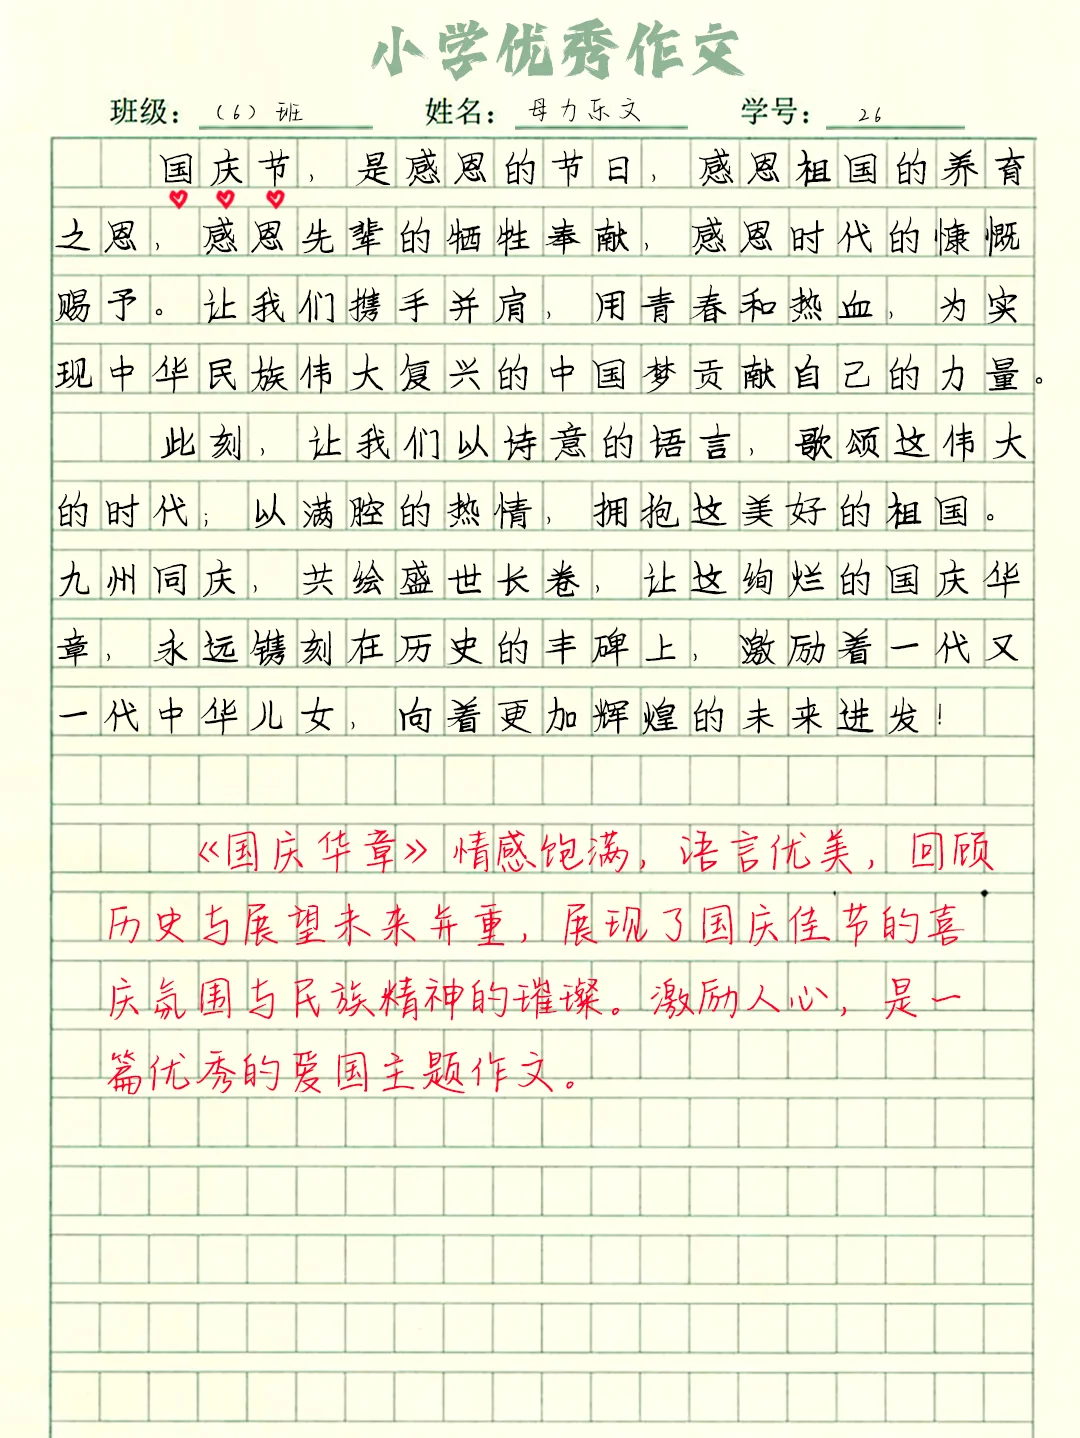 小学优秀作文
班级：（6）班 姓名：母力乐文 学号：26
国庆节，是感恩的节日，感恩祖国的养育
之恩，感恩先辈的牺牲奉献，感恩时代的慷慨
赐予。让我们携手并肩，用青春和热血，为实
现中华民族伟大复兴的中国梦贡献自己的力量。
此刻，让我们以诗意的语言，歌颂这伟大
的时代；以满腔的热情，拥抱这美好的祖国。
九州同庆，共绘盛世长卷，让这绚烂的国庆华
章，永远镌刻在历史的丰碑上，激励着一代又
一代中华儿女，向着更加辉煌的未来进发！
《国庆华章》情感饱满，语言优美，回顾
历史与展望未来并重，展现了国庆佳节的喜
庆氛围与民族精神的璀璨。激励人心，是一
篇优秀的爱国主题作文。